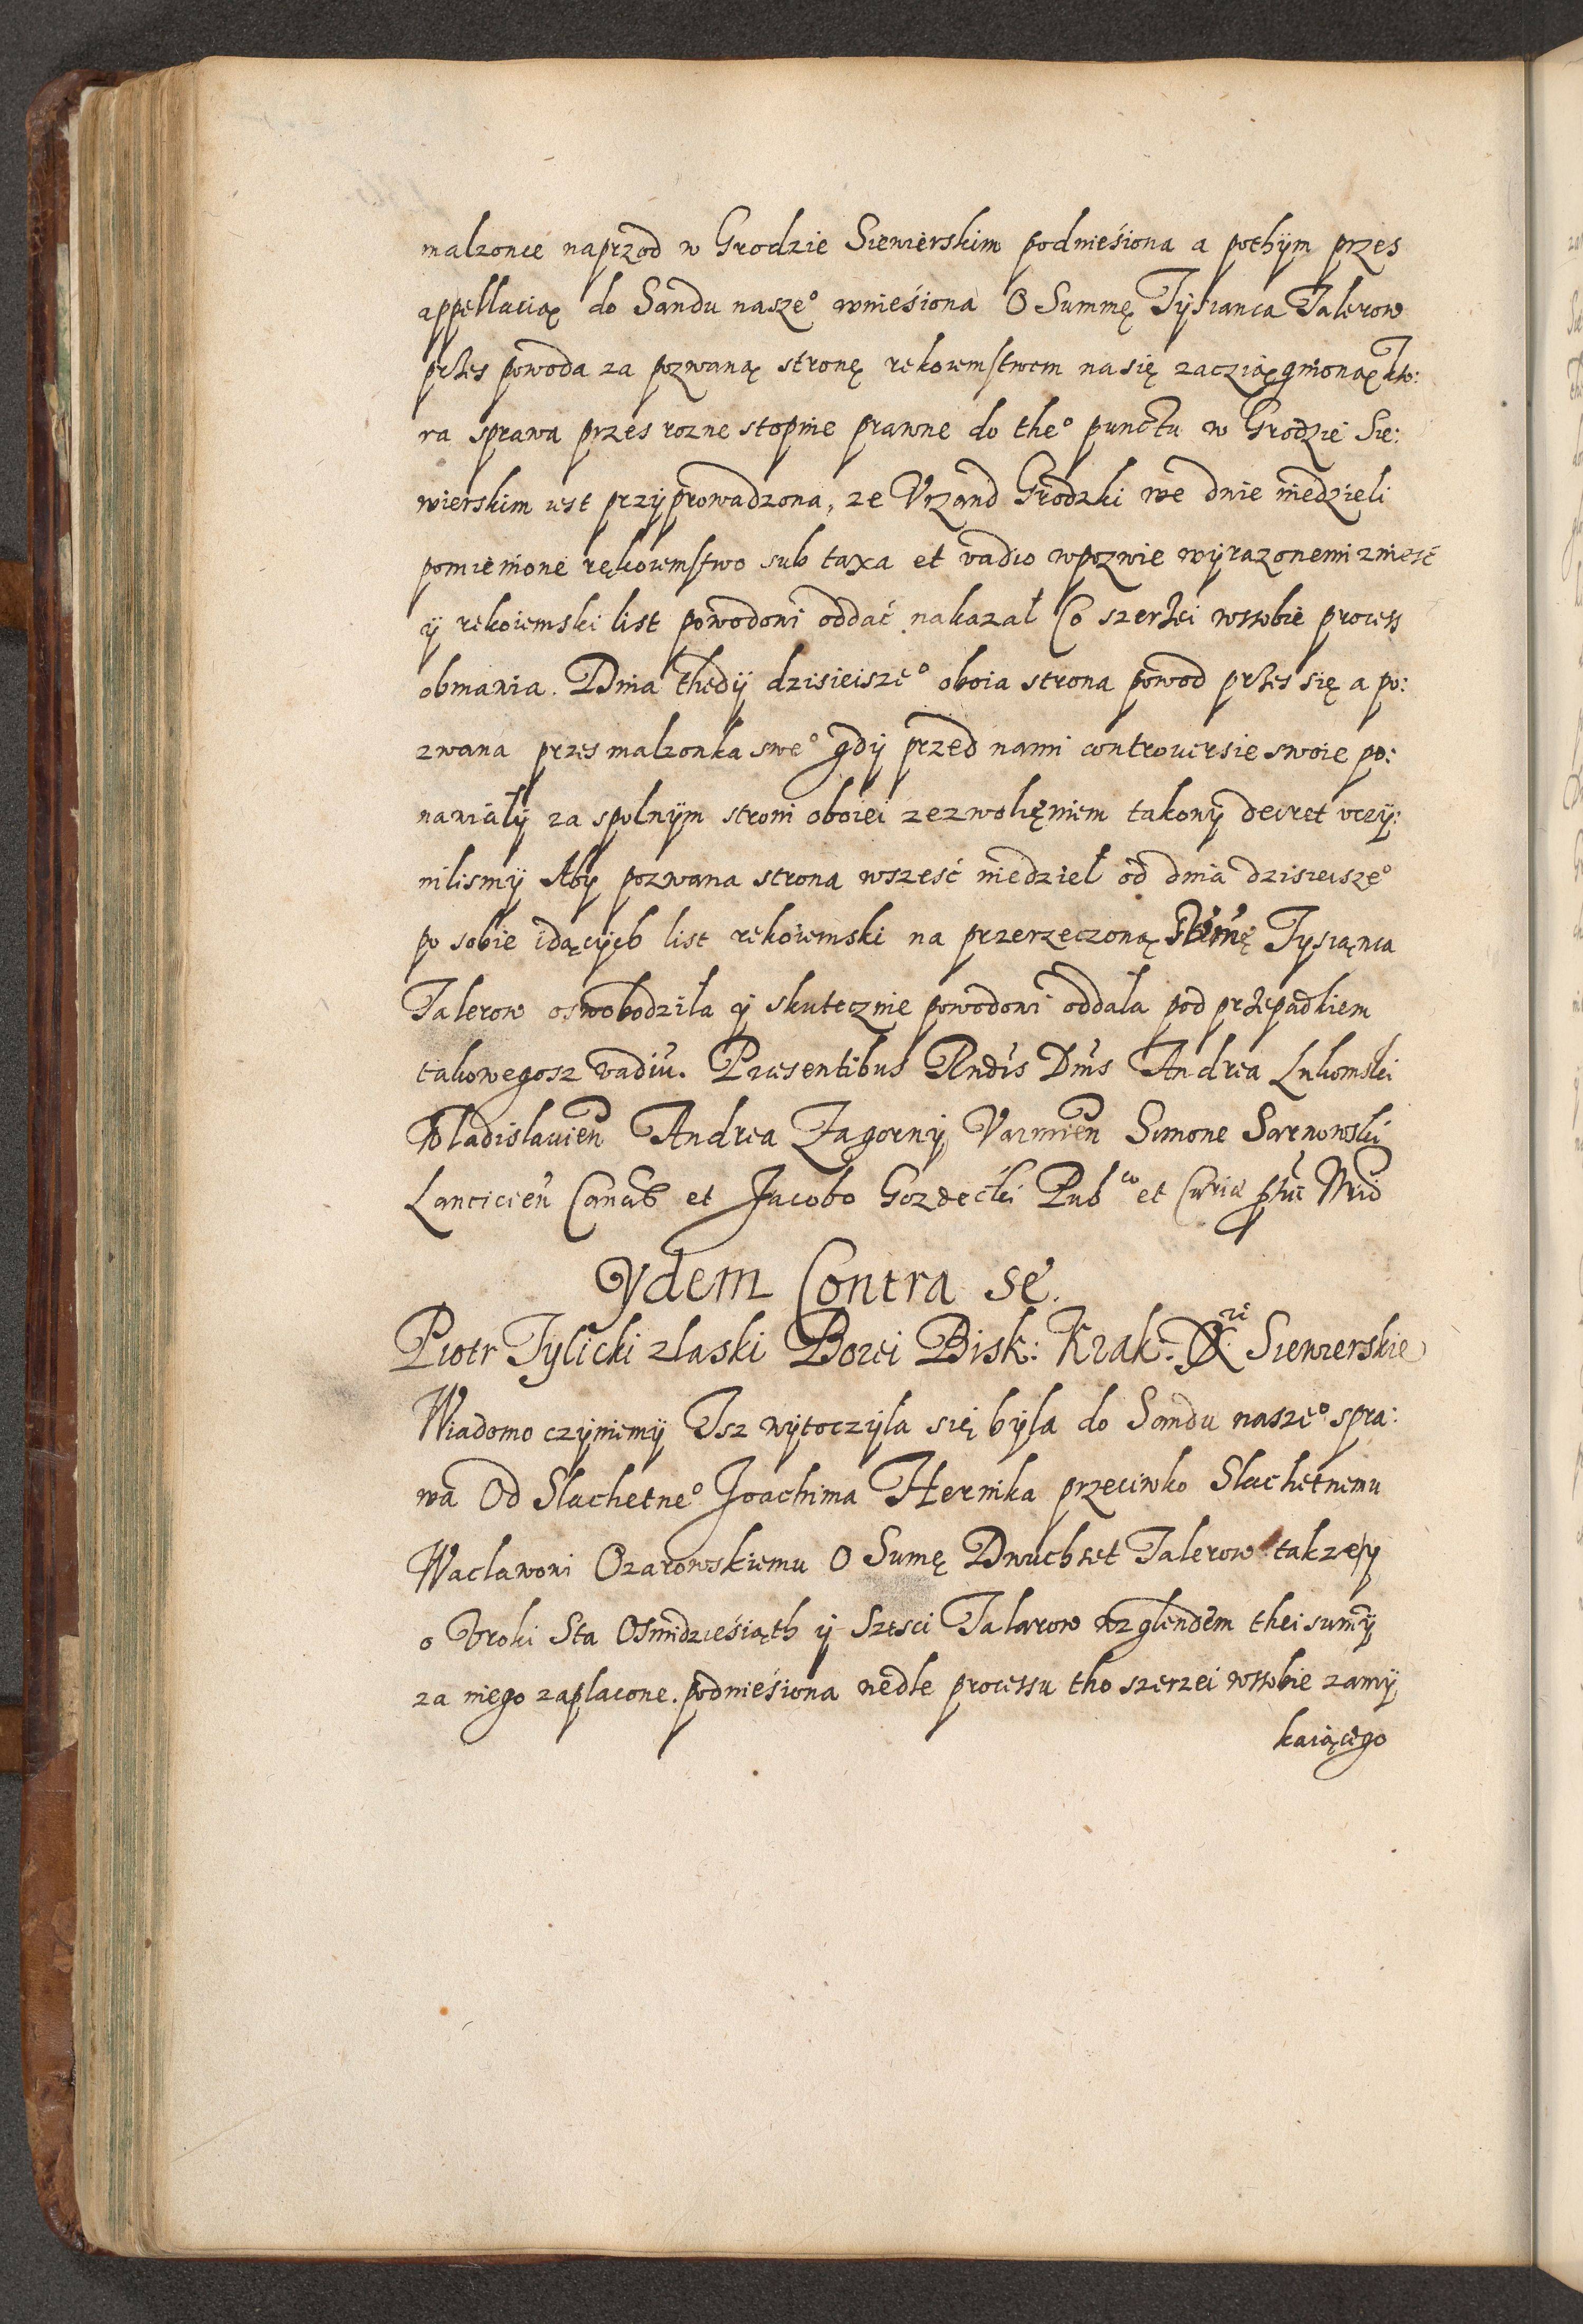 malzonce naprzod w Grodzie Siewierskim podnieśiona a pothÿm przes
appellacią do Sandu nasze° wnieśiona O Summę Tÿsianca Talerow
przes powoda za pozwaną stronę rekoiemstwem na się zacziągnioną Kto:
ra sprawa przes rozne stopnie prawne do the° punctu w Grodzie Sie:
wierskim iest przÿprowadzona, ze Vrzand Grodzki we dnie niedzieli
pomienione rękoiemstwo sub taxa et vadio wpozwie wÿrazonemi zniesć
ÿ rekoiemski list powodowi oddać nakazał Co szerzei wssobie process
obmawia. Dnia thedÿ dzisieisze° oboia strona powod przes się a po:
zwana przes malzonka swe° gdÿ przed nami controversie swoie po:
nawiałÿ za spolnÿm stron oboiei zezwolięniem takowÿ decret vczÿ:
nilismÿ Abÿ pozwana strona wszesć niedziel od dnia dzisieisze°
po sobie idącÿch list rekoiemski na przerzeczoną Sumę Tysiąnca
Talerow oswobodziła ÿ skutecznie powodowi oddala pod przepadkiem
takowegosz vadiu. Præsentibus Rndis Dnis Andrea Lukomski
Wladislavien Andrea Zagornÿ Varmien Simone Sarnowski
Lancicien Cancis et Jacobo Gozdecki Pub^co et Curiæ
Ydem Contra se.
Piotr Tylicki zlaski Bozei Bisk: Krak. X^ze Siewierskie
Wiadomo czÿniemÿ Isz wÿtoczÿla się bÿla do Sandu nasze° spra:
wa Od Slachetne° Joachima Hernika przeciwko Slachetnemu
Waclawowi Ozarowskiemu O Sumę Dwuchset Talerow takze ÿ
o Vroki Sta Osmidzieśiąth ÿ Szesci Talarow wzglendem thei sumÿ
za niego zaplacone. podnieśiona wedle processu tho szerzei wssobie zamÿ
kaiącego